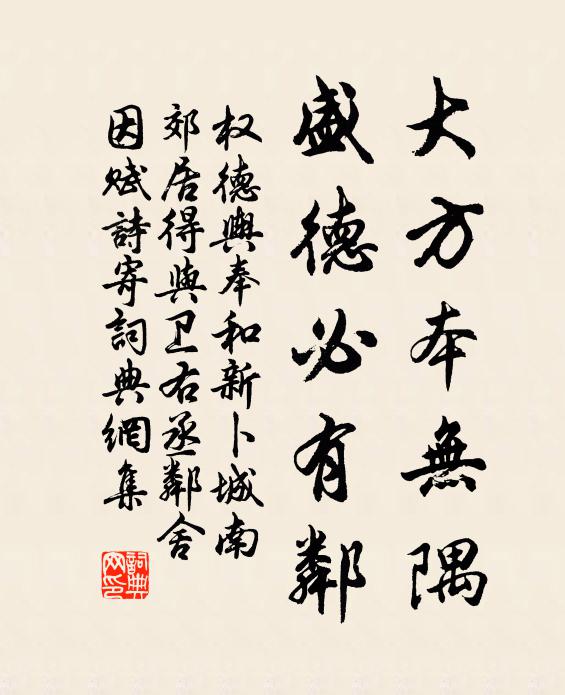 大方本無隅
盛德必有鄰
权德輿奉和新卜城南
郊居得與卫右丞鄰舍
因赋詩寄詞典網集
詞典
网印